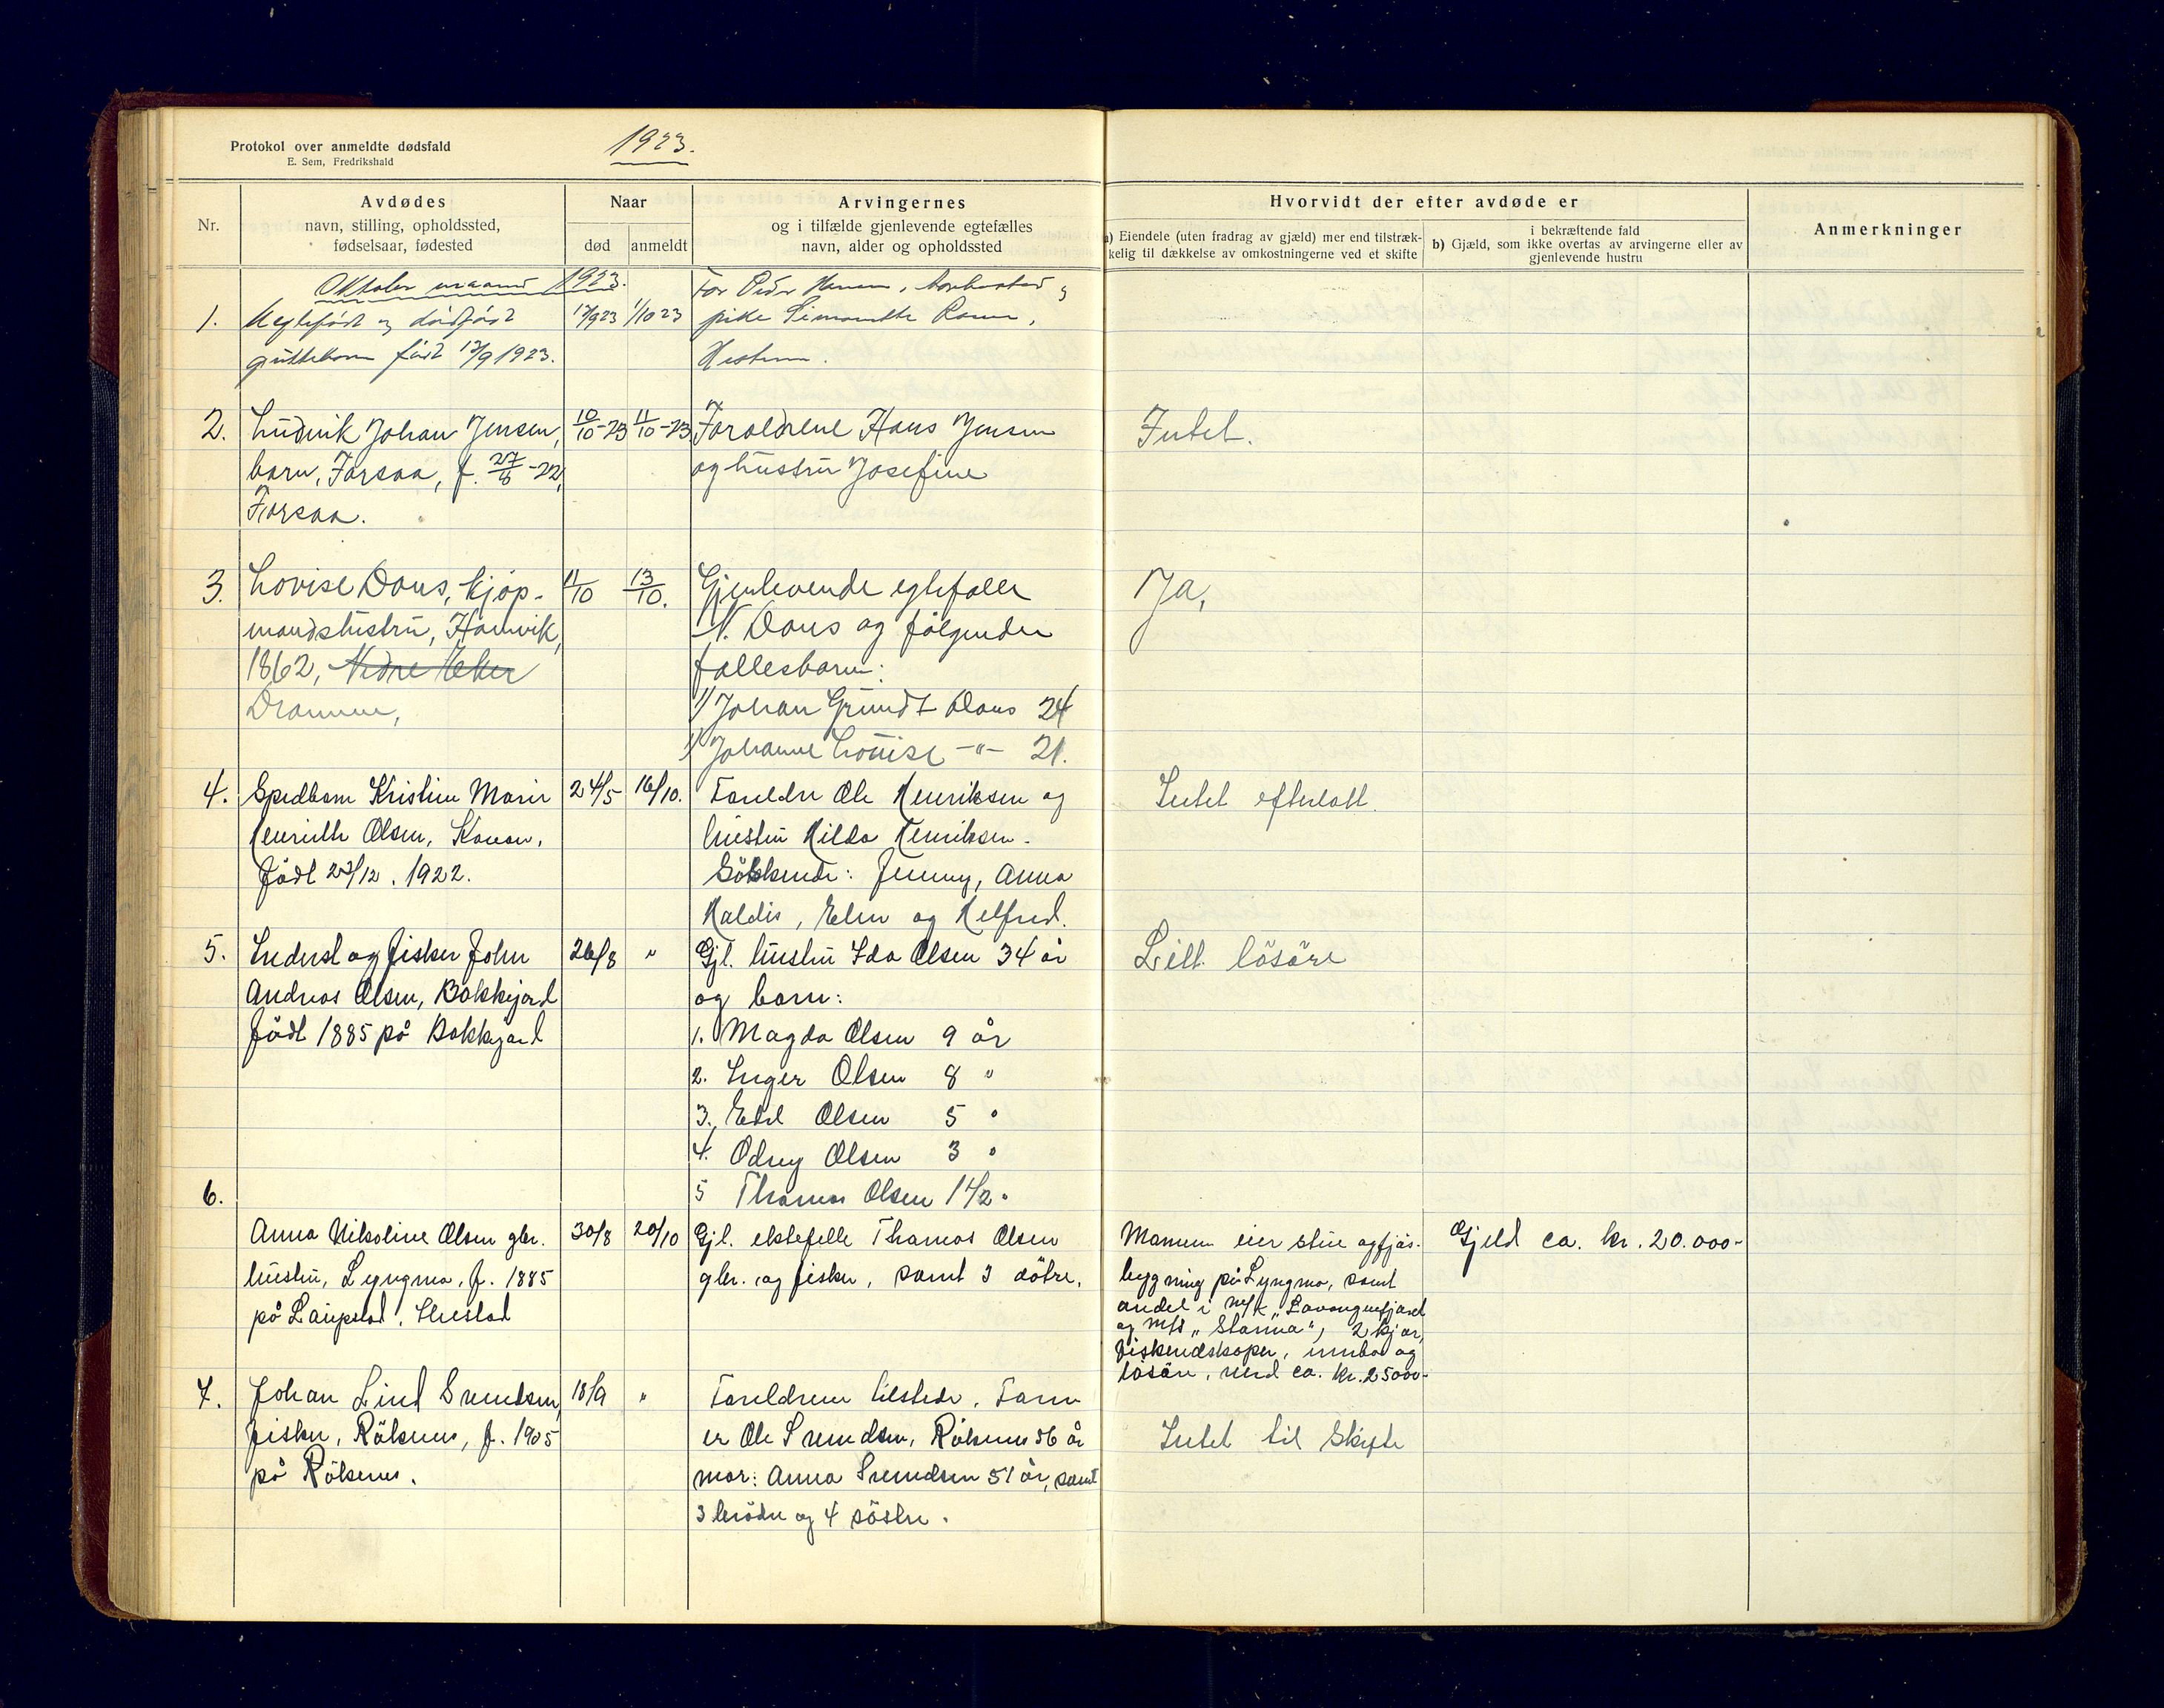 Protokol over anmeldte dødsfald
E. Sem, Fredrikshald
1923.
Nr.
Avdødes
navn, stilling, opholdssted,
fødselsaar, fødested
Naar
død
anmeldt
Arvingernes
og i tilfælde gjenlevende egtefælles
navn, alder og opholdssted
Hvorvidt der efter avdøde er
a) Eiendele (uten fradrag av gjæld) mer end tilstræk-
kelig til dækkelse av omkostningerne ved et skifte
i bekræftende fald
b) Gjæld, som ikke overtas av arvingerne eller av
gjenlevende hustru
Anmerkninger
Oktober maaned 1923.
1.
Uegtefödt og dödfödt
gutteborn födt 17/9 1923.
17/9 23
1/10 23
Far Peder Hansen, og
pike
2.
Ludvik Johan Jensen,
barn, Forsaa, f. 27/6-22,
Forsaa.
10/10-23
11/10-23
Forældrene Hans Jensen
og hustru Josefine
Intet.
3.
Lovise Dons, kjøp-
mandshustru, Hamvik,
1862, Nedre Eker
Drammen,
11/10
13/10.
Gjenlevende egtefælle
N. Dons og følgende
fællesbarn:
1/ Johan Grundt Dons 24
Johanne Louise -"- 21.
Ja,
4.
Spedbarn Kristine Marie
Henriette Olsen,
Födt 27/12. 1922.
24/5
16/10.
Foreldre Ole Henriksen og
hustru Hilda Henriksen.
Sökkende: Jenny, Anna
Haldis, Elen og Helfred.
Intet efterlatt.
5.
Inderst og fisker John
Andreas Olsen, Bokkejord
födt 1885 på Bokkejord
26/8
"
Gjl. hustru Ida Olsen 34 år
og barn:
1. Magda Olsen 9 år
2. Inger Olsen 8 "
3. Edel Olsen 5 "
4. Odny Olsen 3 "
5 Thomas Olsen 1 1/2 "
Litt lösöre
6.
Anna Nikoline Olsen gbr.
hustru, Lyngmo, f. 1885
på Laupstad,
30/8
20/10
Gjl. ektefelle Thomas Olsen
gbr. og fisker, samt 3 dötre.
Mannen eier stue og fjös-
bygning på Lyngmo, samt
andel i m/k "Lavangsfjord
og m/s "Stærna", 2 kjör,
fiskeredskaper, innbo og
lösöre, verd ca. kr. 25000-
Gjeld ca. kr. 20.000-
7.
Johan Lind Svendsen,
fisker, Röksnes, f. 1905
på Röksnes.
18/9
"
Foreldrene tilstede. Faren
er Ole Svendsen, Röksnes 56 år
mor: Anna Svendsen 51 år, samt
3 brödre og 4 söstre.
Intet til skifte